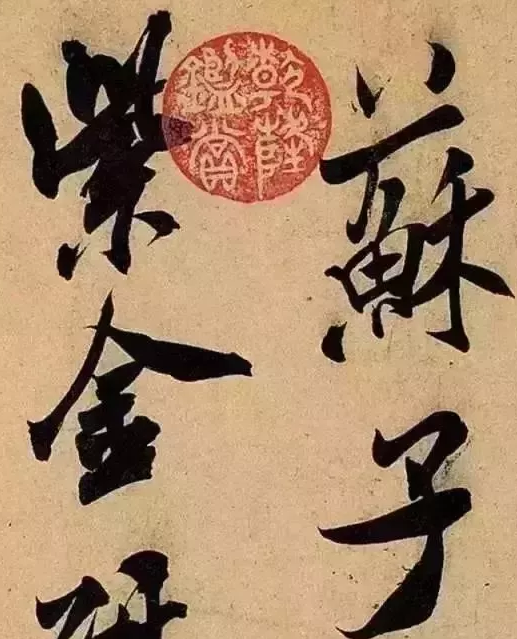 蘇子
紫金
乾隆
鑑賞